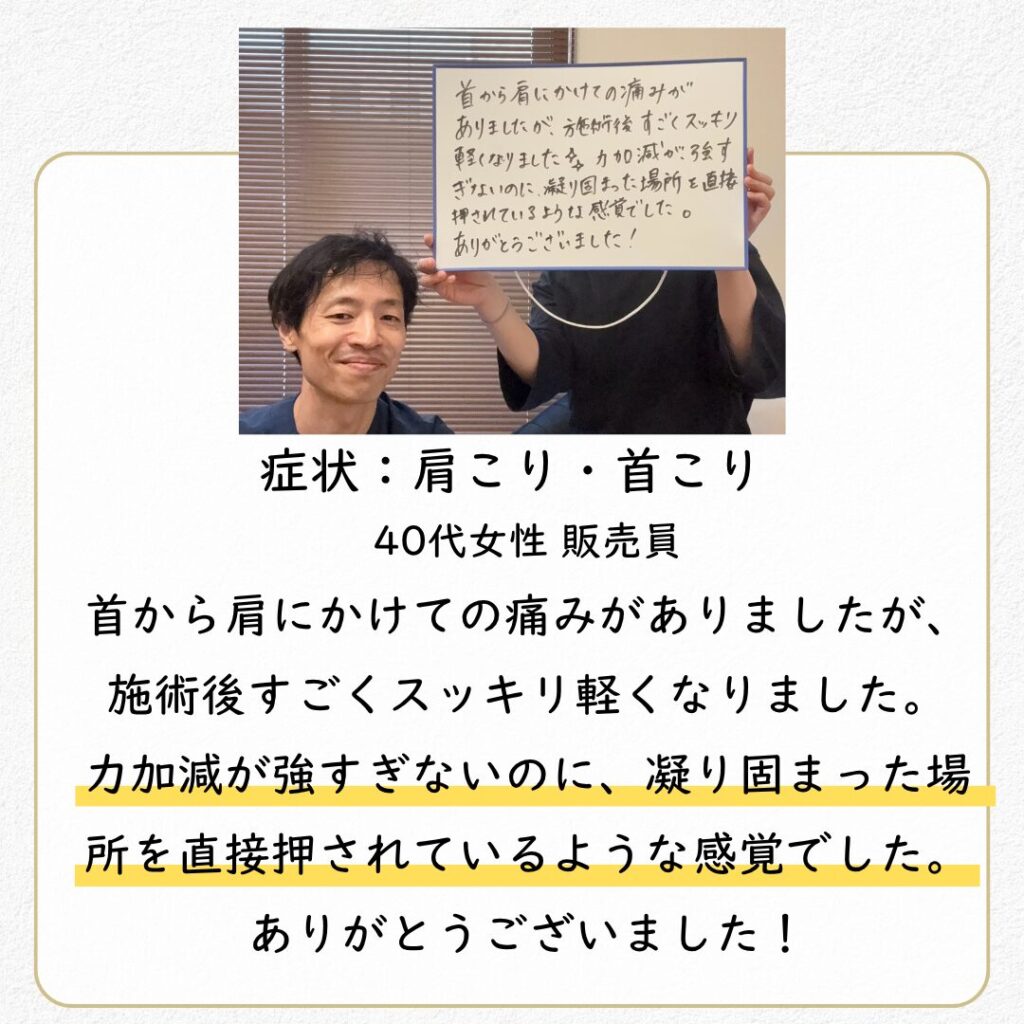 首から肩にかけての痛みが
ありましたが、施術後すごくスッキリ
軽くなりました✨力加減が強す
ぎないのに、凝り固まった場所を直接
押されているような感覚でした。
ありがとうございました!
症状：肩こり・首こり
40代女性 販売員
首から肩にかけての痛みがありましたが、
施術後すごくスッキリ軽くなりました。
力加減が強すぎないのに、凝り固まった場
所を直接押されているような感覚でした。
ありがとうございました！